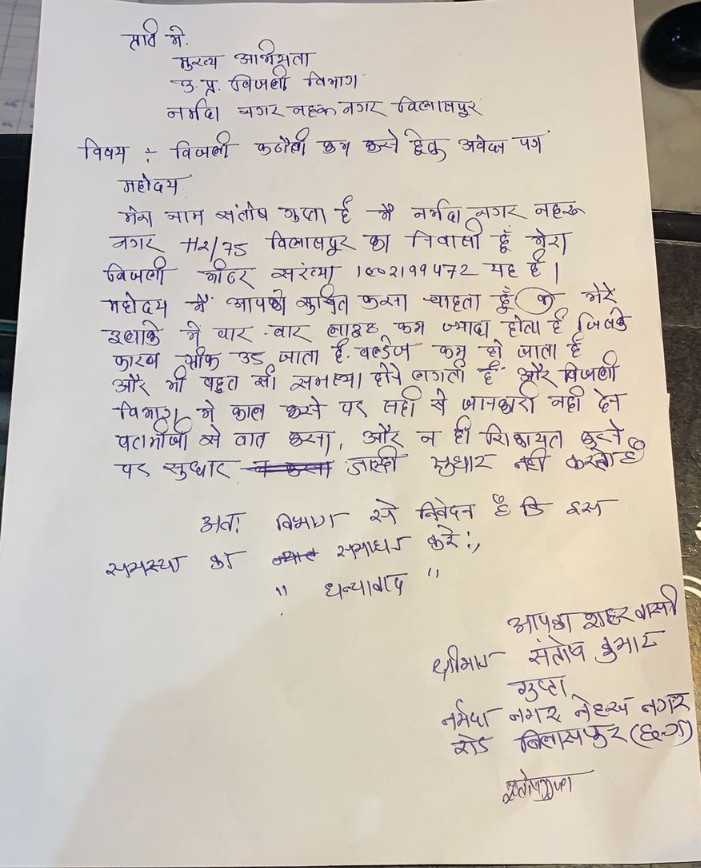 मुख्य अभियंता
उ.प्र. बिजली विभाग
नर्मदा नगर नगर विलासपुर
विषय :- बिजली कटौती कम करने हेतु
महोदय
मेरा नाम संतोष गुप्ता है मैं नर्मदा नगर नेहरू
नगर H2/75 विलासपुर का निवासी हूँ मेरा
बिजली मीटर संख्या 1002199472 यह है।
महोदय मैं आपको सुचित करना चाहता हूँ कि मेरे
इलाके में बार-बार लाइट कम ज्यादा होता है जिसके
कारण उड जाता है. कम हो जाता है
और भी बहुत सी समस्या होने लगती है और बिजली
विभाग में काल करने पर सही से जानकारी नही देना
बतमीजी से बात करना, और न ही शिकायत करने
पर सुधार जल्दी सुधार नही करते है
अतः विभाग से निवेदन है कि इस
समस्या का करे:,
" धन्यावाद "
आपका शहर वासी
श्रीमान संतोष कुमार
गुप्ता
नर्मदा नगर नेहरू नगर
रोड बिलासपुर (छ.ग)